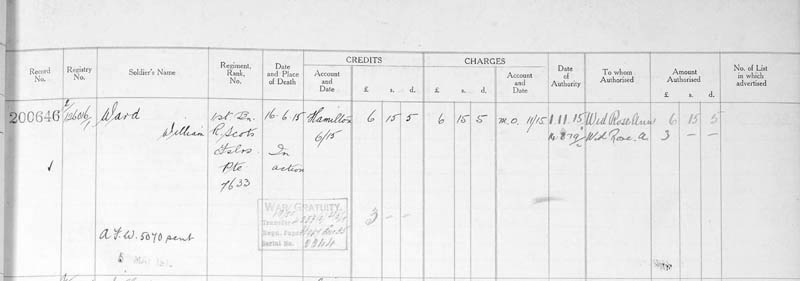 CREDITS CHARGES
Record No. Registry No. Soldier's Name Regiment, Rank, No. Date and Place of Death Account and Date £ s. d. £ s. d. Account and Date Date of Authority To whom Authorised Amount Authorised £ s. d. No. of List in which advertised
200646 Ward 1st Bn. 16.6.15 Hamilton 6 15 5 6 15 5 M.O. 11/15 1.11.15 Wid Rose Ann 6 15 5
William R. Scots 6/15 Wid Rose. A. 3 — —
Fslrs. In
Pte action
7633
WAR GRATUITY 3 — —
Transfer
Regn. Paper
Serial No.
A.F.W. 5070 sent